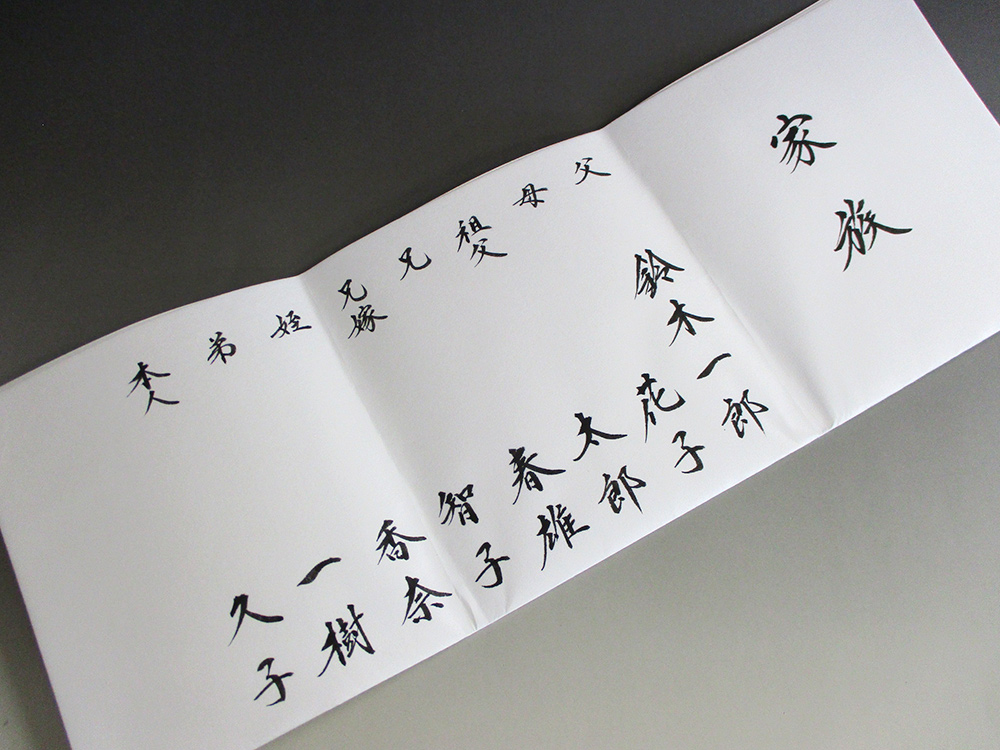 家族
父 鈴木一郎
母 花子
祖父 太郎
兄 春雄
兄嫁 智子
姪 香奈
弟 一樹
本人 久子